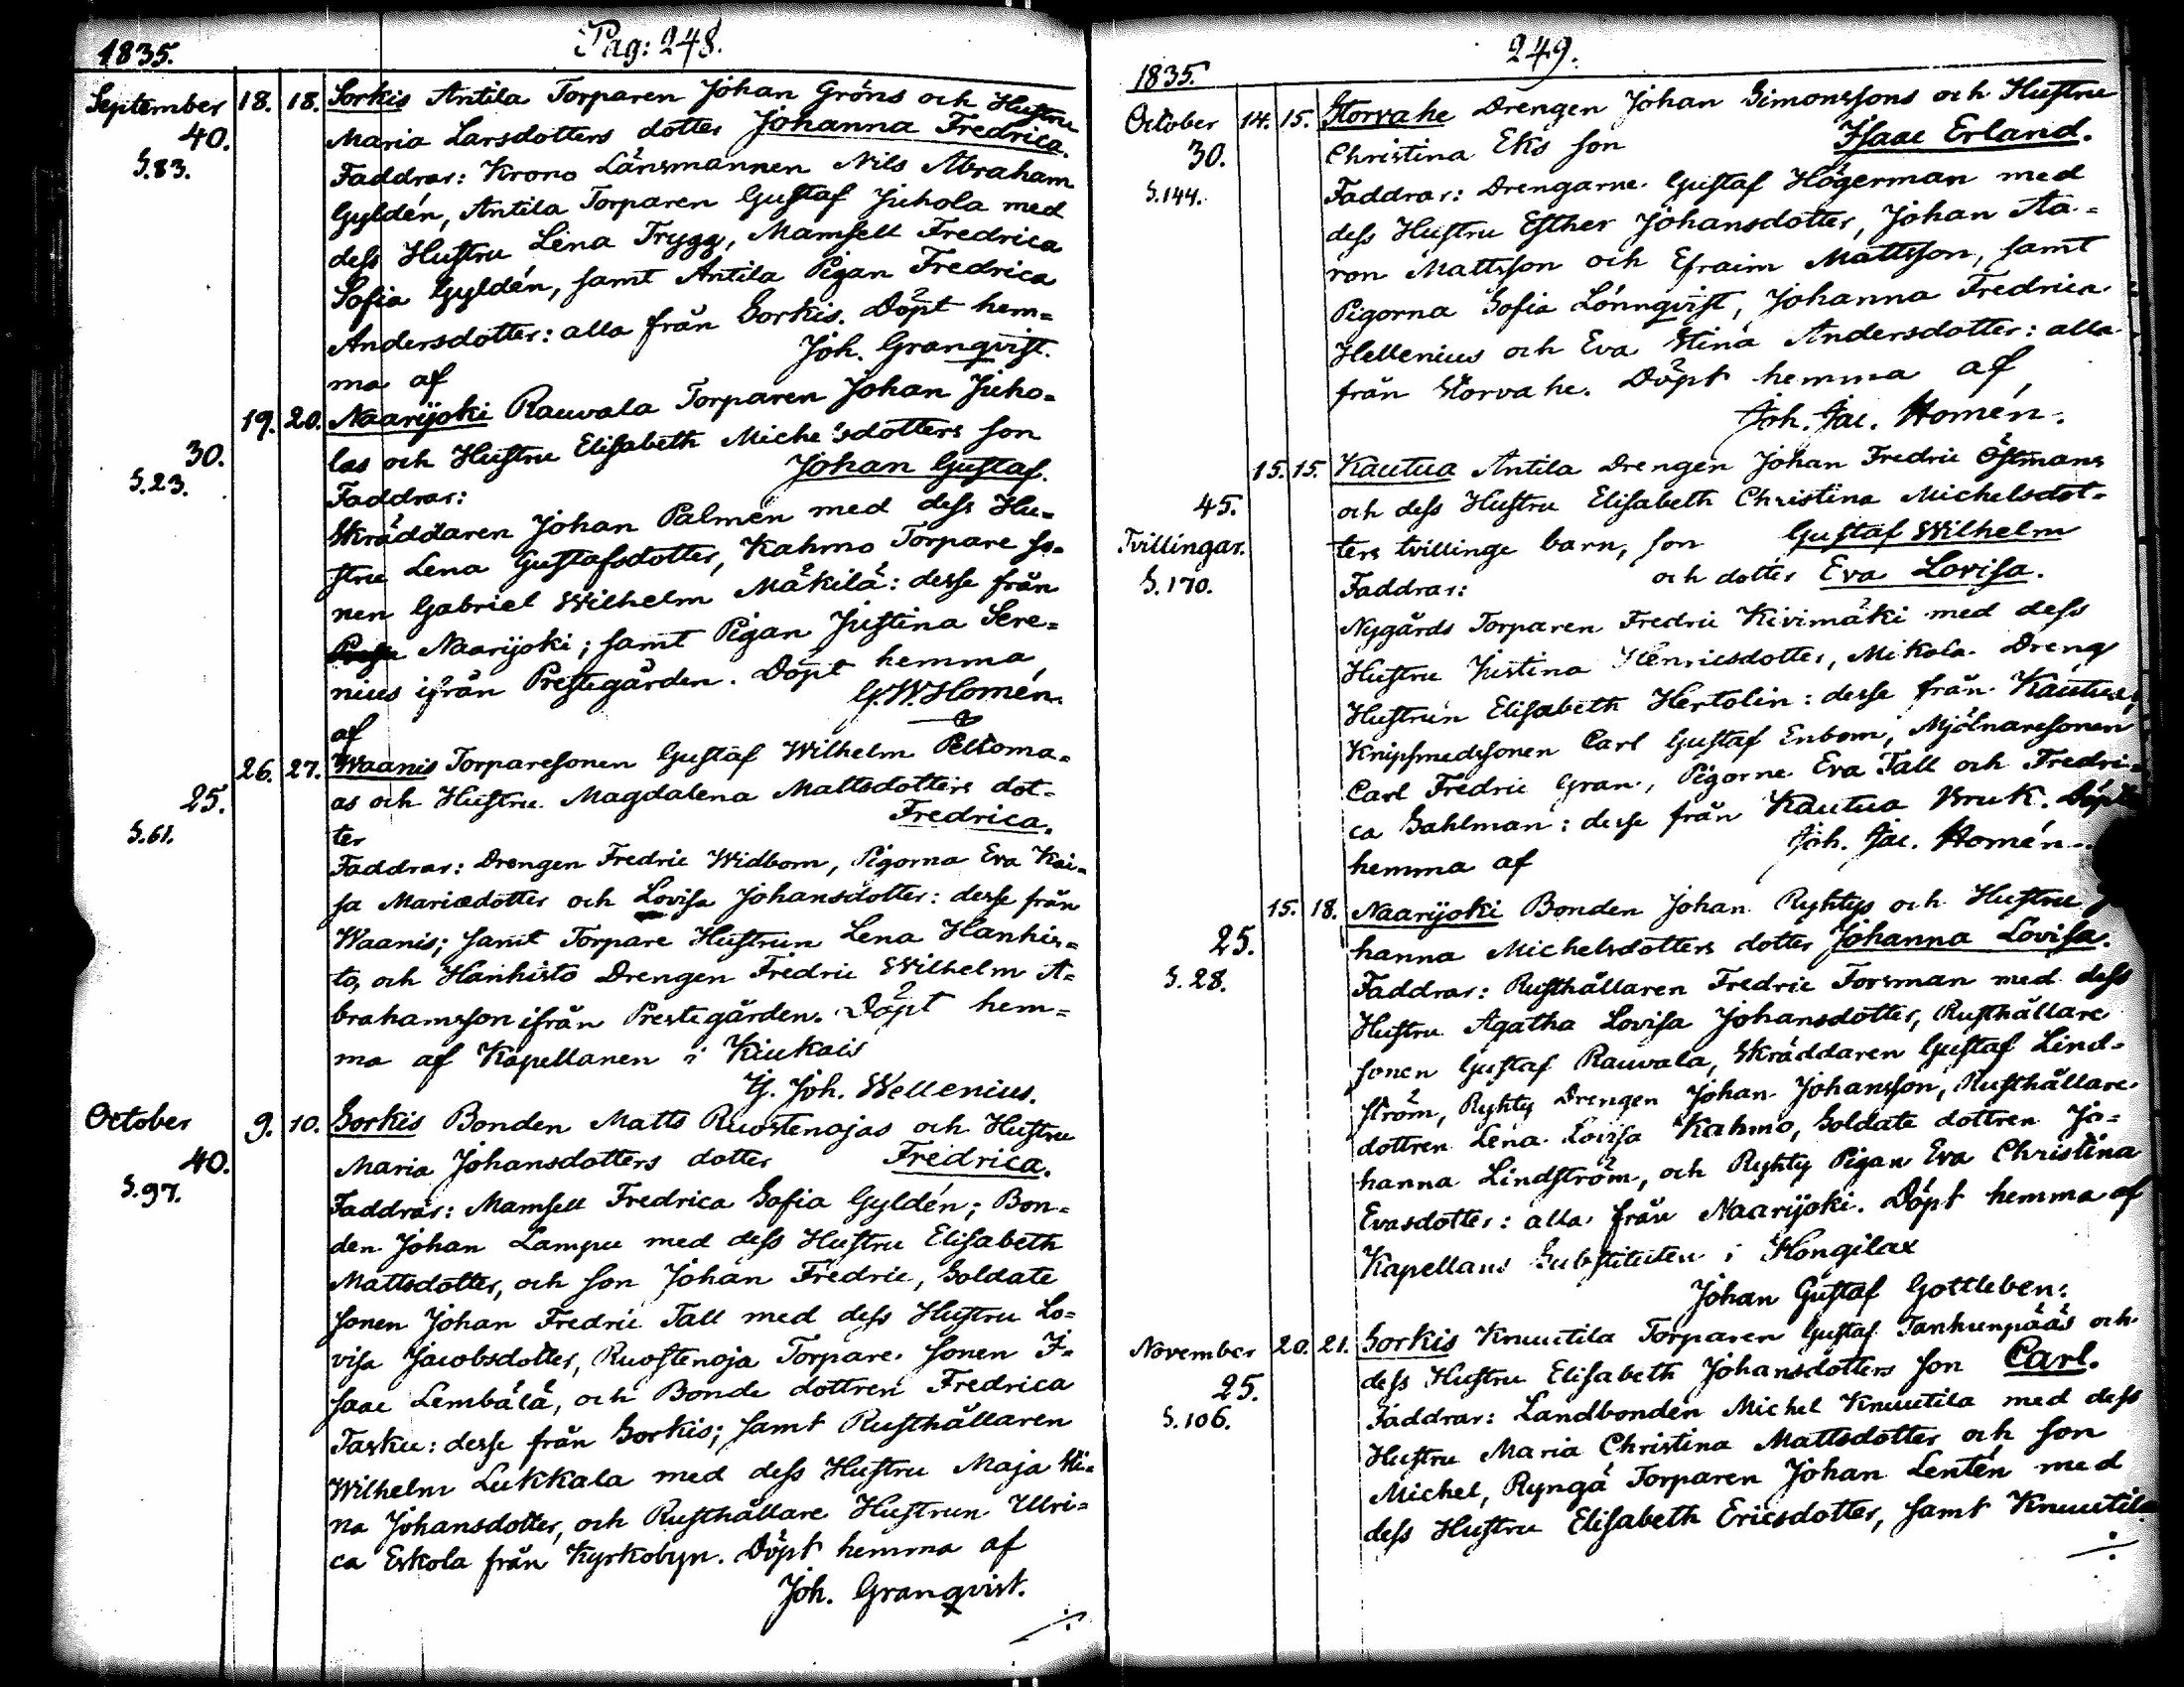 Pag: 248.
1835.
September 18. 18. Sorkis Antila Torparen Johan Gröns och Hustru
40. Maria Larsdotters dotter Johanna Fredrica.
S.83. Faddrar: Krono Länsmannen Nils Abraham
Gyldén, Antila Torparen Gustaf Juhola med
dess Hustru Lena Trygg, Mamsell Fredrica
Sofia Gyldén, samt Antila Pigan Fredrica
Andersdotter: alla från Sorkis. Döpt hem=
ma af Joh. Granqvist.
19. 20. Naarijoki Rauvala Torparen Johan Juho=
30. las och Hustru Elisabeth Miche'sdotters son
S.23. Johan Gustaf.
Faddrar:
Skräddaren Johan Palmén med dess Hu=
stru Lena Gustafsdotter, Kahmo Torpare so=
nen Gabriel Wilhelm Mäkilä: desse från
Naarijoki; samt Pigan Justina Sere=
nius ifrån Prestegården. Döpt hemma
af G.W. Homén.
26. 27. Waanis Torparesonen Gustaf Wilhelm Peltoma=
25. as och Hustru Magdalena Mattsdotters dot=
S.61. ter Fredrica.
Faddrar: Drengen Fredric Widbom, Pigorna Eva Kai=
sa Mariædotter och Lovisa Johansdotter: desse från
Waanis; samt Torpare Hustrun Lena Hanhis=
to, och Hanhisto Drengen Fredric Wilhelm A=
brahamsson ifrån Prestegården. Döpt hem=
ma af Kapellanen i Kiukais
G. Joh. Wellenius.
October 9. 10. Sorkis Bonden Matts Ruostenojas och Hustru
40. Maria Johansdotters dotter Fredrica.
S.97. Faddrar: Mamsell Fredrica Sofia Gyldén; Bon=
den Johan Lampu med dess Hustru Elisabeth
Mattsdotter, och son Johan Fredric, Soldate
sonen Johan Fredric Tall med dess Hustru Lo=
visa Jacobsdotter, Ruostenoja Torpare sonen I=
saac Lembälä, och Bonde dottren Fredrica
Tasku: desse från Sorkis; samt Rusthållaren
Wilhelm Lukkala med dess Hustru Maja Sti=
na Johansdotter, och Rusthållare Hustrun Ulri=
ca Eskola från Kyrkobyn. Döpt hemma af
Joh. Granqvist.
249.
1835.
October 14. 15. Storvahe Drengen Johan Simonssons och Hustru
30. Christina Eks son Isaac Erland.
S.144. Faddrar: Drengarne Gustaf Högerman med
dess Hustru Esther Johansdotter, Johan Aa=
ron Mattsson och Efraim Mattsson, samt
Pigorna Sofia Lönnqvist, Johanna Fredrica
Hellenius och Eva Stina Andersdotter: alla
från Storvahe. Döpt hemma af
Joh. Jac. Homén.
15. 15. Kautua Antila Drengen Johan Fredric Östmans
45. och dess Hustru Elisabeth Christina Michelsdot=
Tvillingar. ters tvillinge barn, son Gustaf Wilhelm
S.170. och dotter Eva Lovisa.
Faddrar:
Nygårds Torparen Fredric Kivimäki med dess
Hustru Justina Henricsdotter, Mikola Dreng
Hustrun Elisabeth Hertolin: desse från Kautua;
Knipsmedssonen Carl Gustaf Enbom, Mjölnaresonen
Carl Fredric Gran, Pigorne Eva Tall och Fredri=
ca Sahlman: desse från Kautua Bruk. Döpt
hemma af Joh. Jac. Homén.
15. 18. Naarijoki Bonden Johan Ryhtys och Hustru
25. hanna Michelsdotters dotter Johanna Lovisa.
S.28. Faddrar: Rusthållaren Fredric Forsman med dess
Hustru Agatha Lovisa Johansdotter, Rusthållare
sonen Gustaf Rauvala, Skräddaren Gustaf Lind=
ström, Ryhty Drengen Johan Johansson, Rusthållare
dottren Lena Lovisa Kahmo, Soldate dottren Jo=
hanna Lindström, och Ryhty Pigan Eva Christina
Evasdotter: alla från Naarijoki. Döpt hemma af
Kapellans Substituten i Hongilax
Johan Gustaf Gottleben.
November 20. 21. Sorkis Knuutila Torparen Gustaf Tanhunpääs och
25. dess Hustru Elisabeth Johansdotters son Carl.
S.106. Faddrar: Landbonden Michel Knuutila med dess
Hustru Maria Christina Mattsdotter och son
Michel, Ryngä Torparen Johan Lentén med
dess Hustru Elisabeth Ericsdotter, samt Knuutila